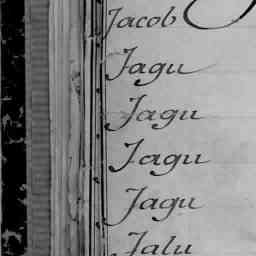 Jacob
Jagu
Jagu
Jagu
Jagu
Jalu